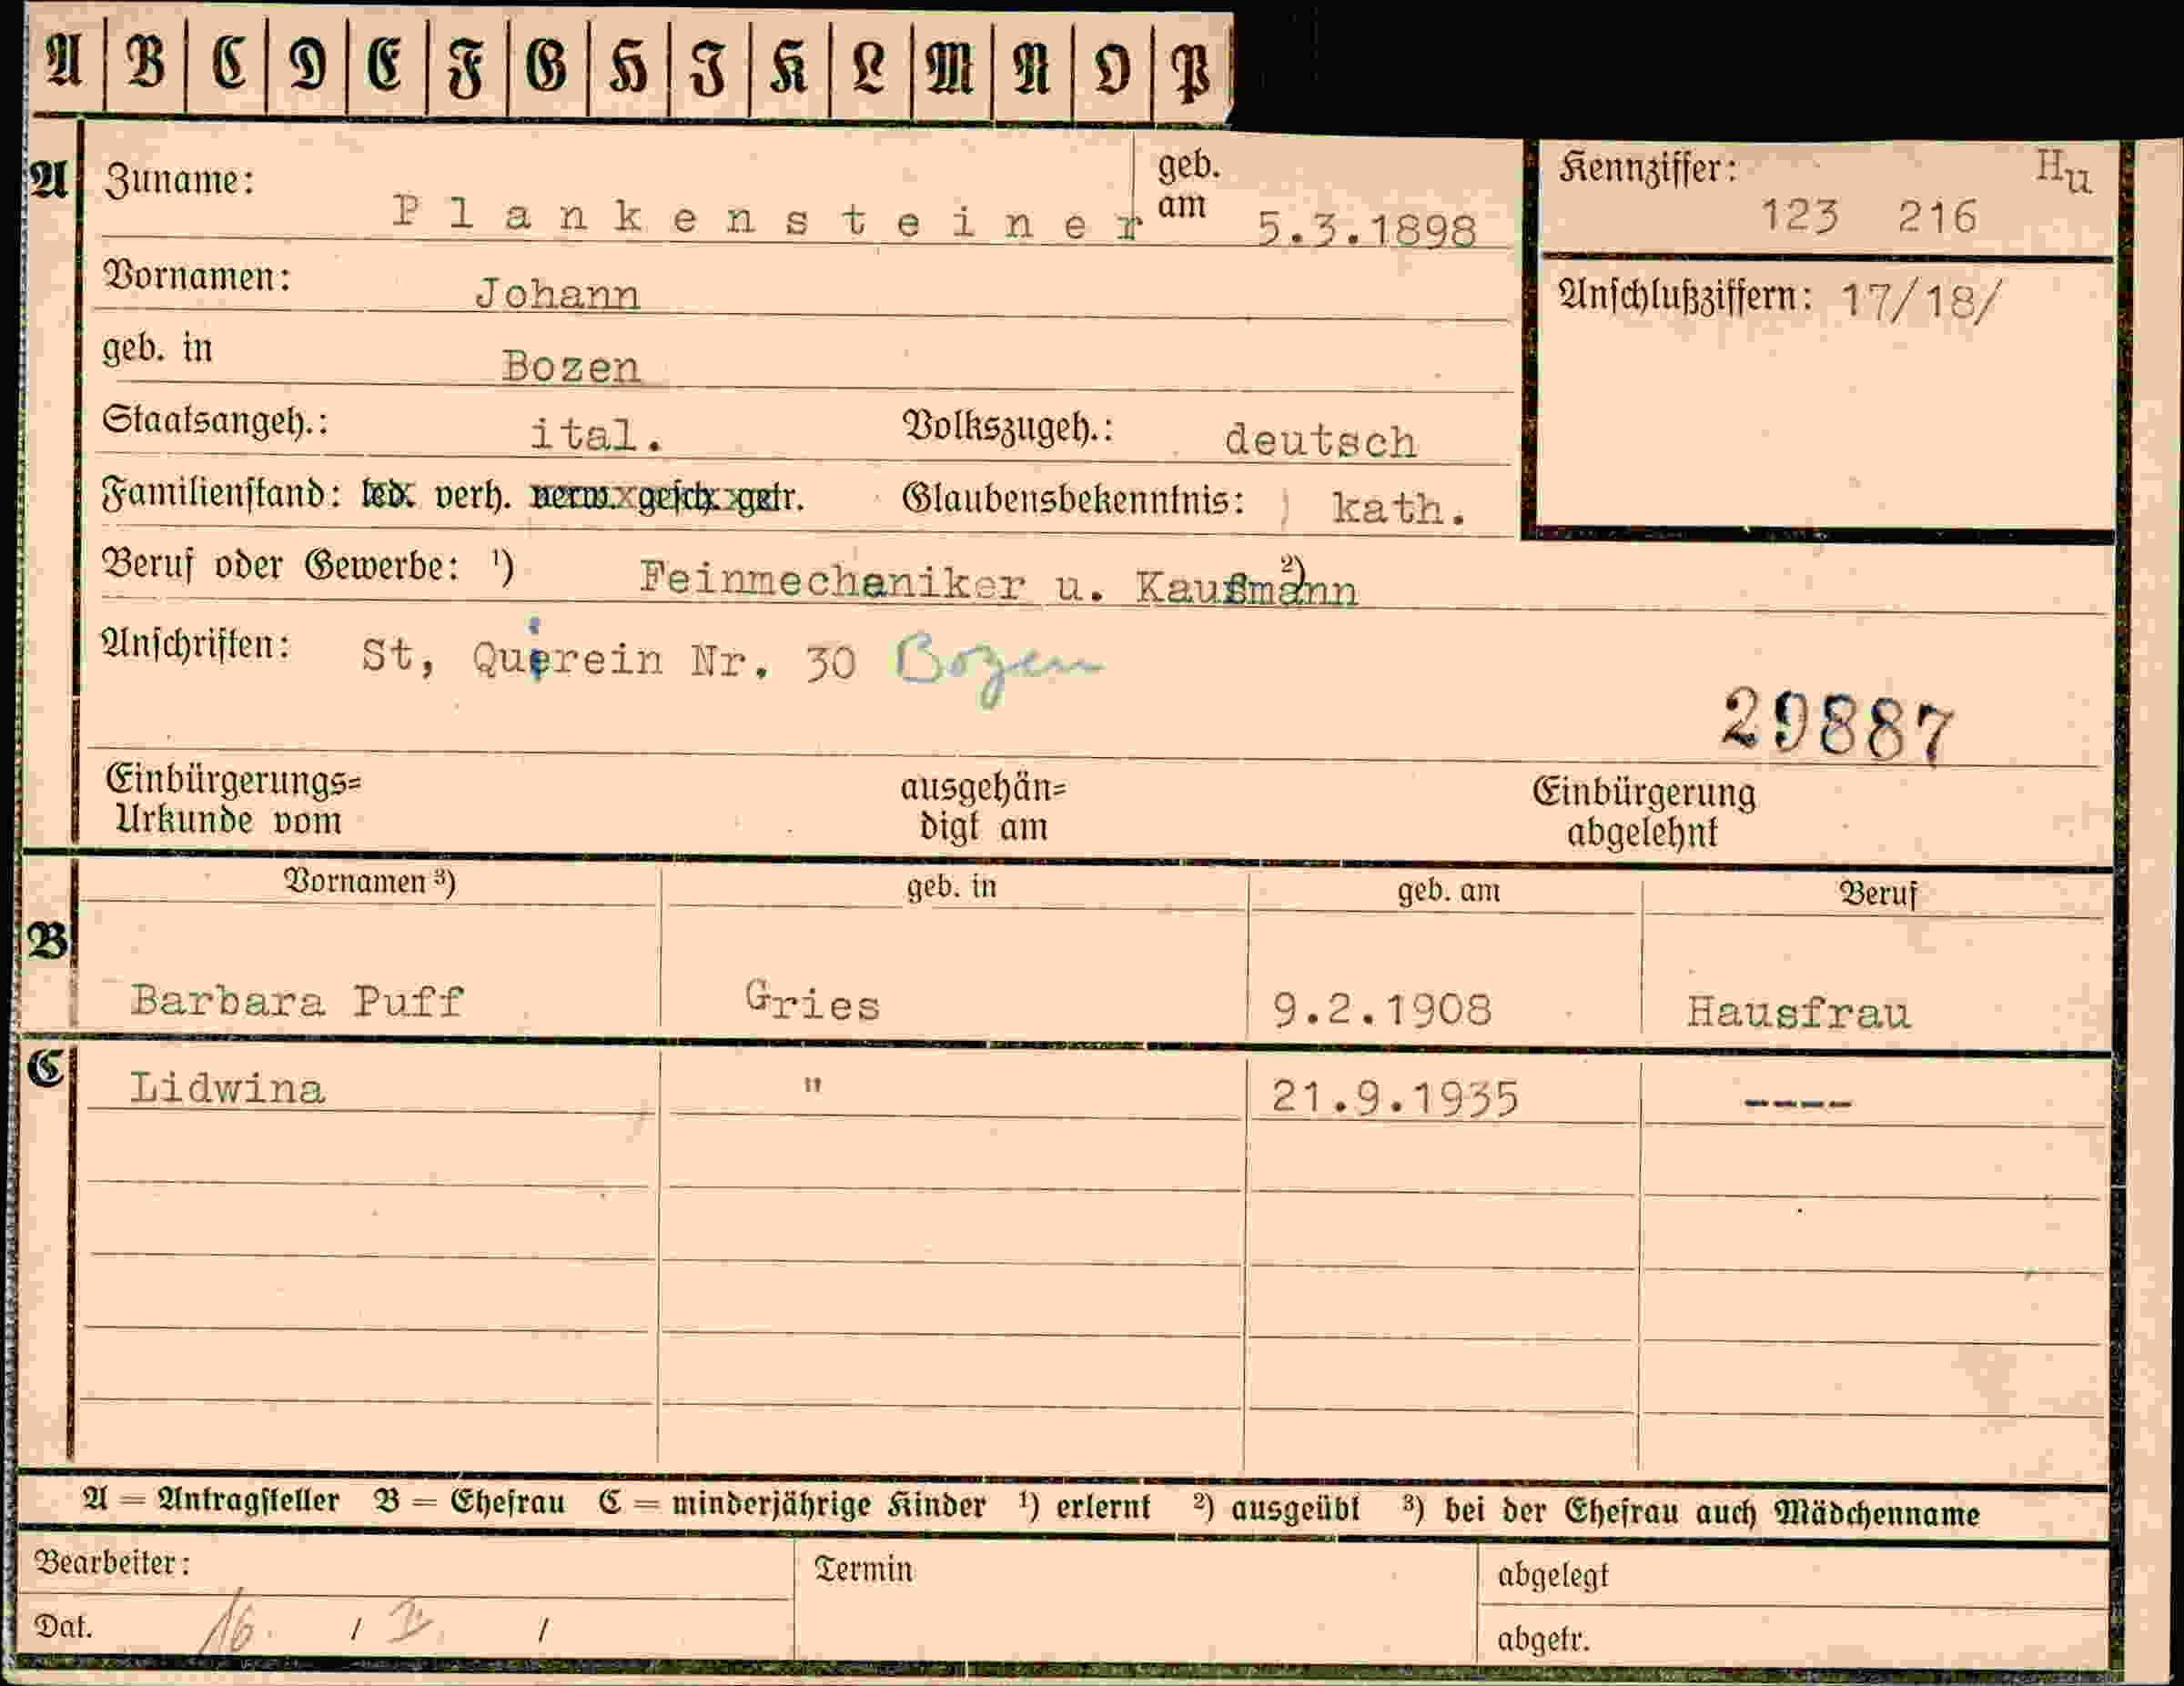 A B C D E F G H I K L M N O P
A Zuname: Plankensteiner geb. am 5.3.1898
Kennziffer: Hu
123 216
Vornamen: Johann
Anschlußziffern: 17/18/
geb. in Bozen
Staatsangeh.: ital. Volkszugeh.: deutsch
Familienstand: led. verh. verw. gesch. getr. Glaubensbekenntnis: kath.
Beruf oder Gewerbe: ¹) Feinmechaniker u. Kaufmann ²)
Anschriften: St, Quirein Nr. 30 Bozen
29887
Einbürgerungs= ausgehän= Einbürgerung
Urkunde vom digt am abgelehnt
Vornamen ³) geb. in geb. am Beruf
B
Barbara Puff Gries 9.2.1908 Hausfrau
C Lidwina " 21.9.1935 ----
A = Antragsteller B = Ehefrau C = minderjährige Kinder ¹) erlernt ²) ausgeübt ³) bei der Ehefrau auch Mädchenname
Bearbeiter: Termin abgelegt
Dat. 16. / / abgetr.